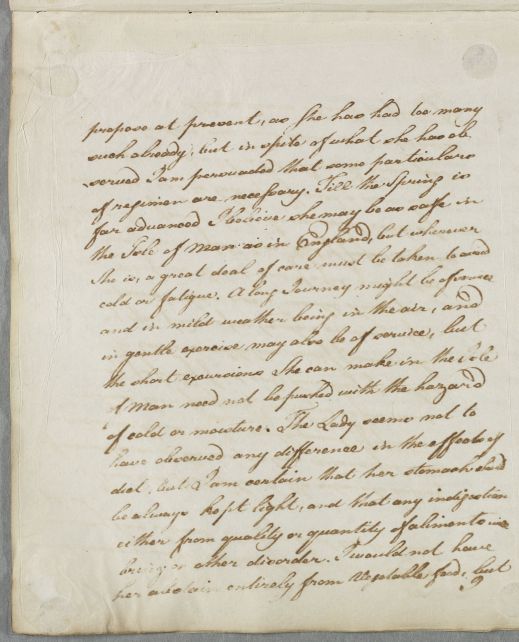 propose at present, as she has had too many
such already; but in spite of what she has ob
served I am persuaded that some particulars
of regimen are necessary. Till the Spring is
far advanced I believe she may be as safe in
the Isle of Man as in England, but wherever
she is, a great deal of care must be taken to avoid
cold or fatigue. A long Journey might be of service
and in mild weather being in the air, and
in gentle exercise may also be of service, but
the short excursions She can make in the Isle
of Man need not be pushed with the hazard
of cold or moisture. The Lady seems not to
have observed any difference in the effects of
diet, but I am certain that her stomach should
be always kept light, and that any indigestion
either from quality or quantity of aliment will
bring on other disorder. I would not have
her abstain entirely from Vegetable food, but